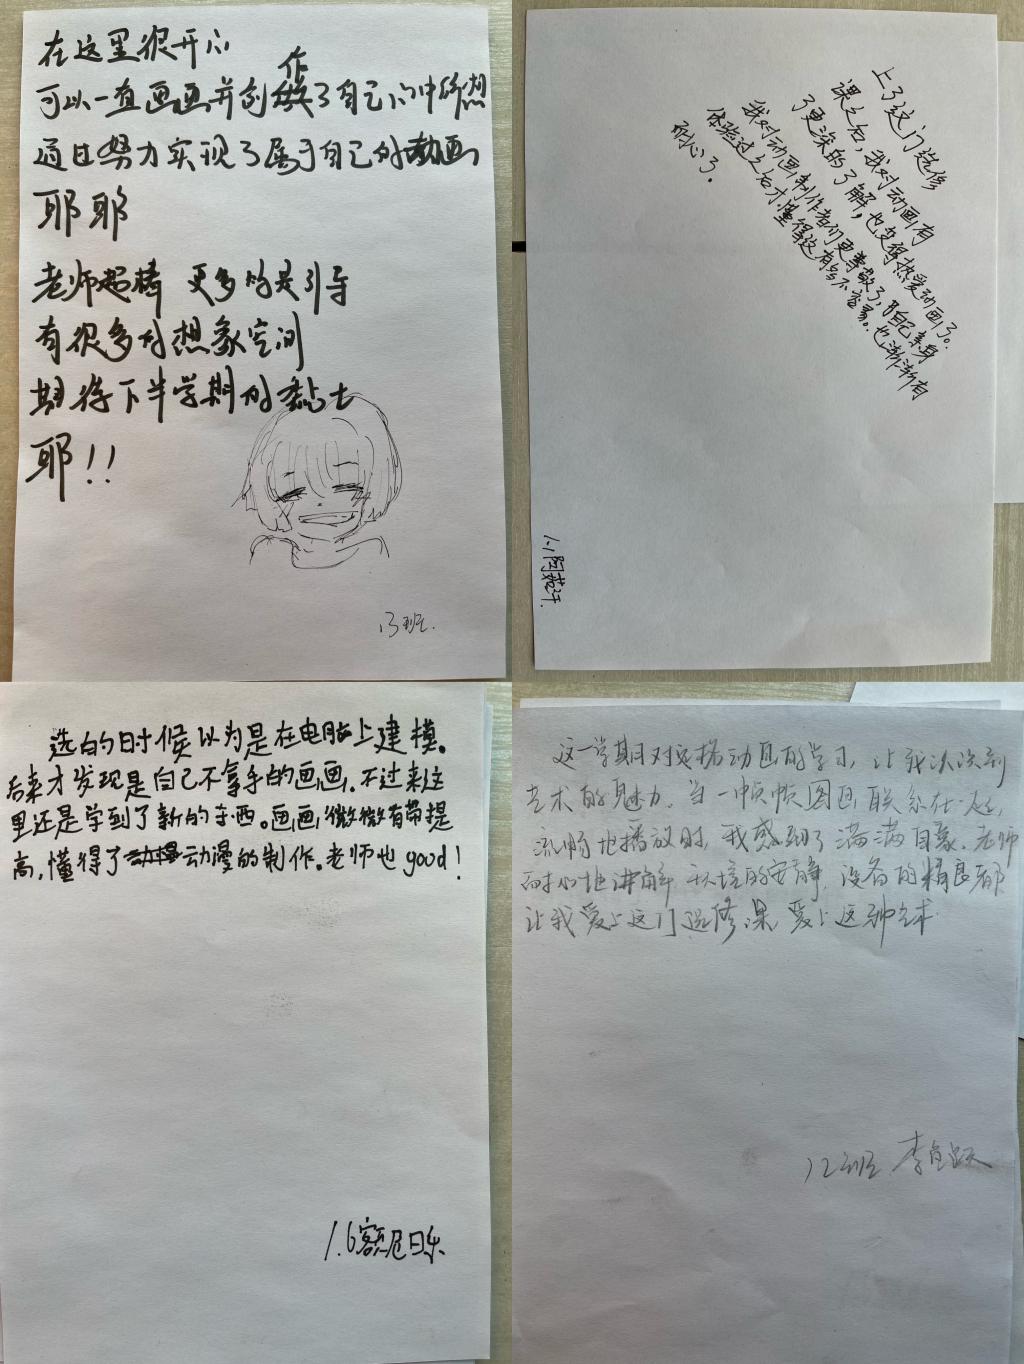 在这里很开心
可以一直画画并创作了自己心中所想
通过努力实现了属于自己的动画
耶耶
老师超棒 更多的是引导
有很多的想象空间
期待下半学期的黏土
耶！！
13班.
上了这门选修
课之后，我对动画有
了更深的了解，也变得热爱动画了。
我对动画制作者们更尊敬了，自己亲身
体验过之后才懂得这有多不容易。也渐渐有
耐心了。
选的时候以为是在电脑上建模。
后来才发现是自己不拿手的画画。不过来这
里还是学到了新的东西。画画微微有带提
高，懂得了动漫的制作。老师也good！
1.6额尼日乐
这一学期对定格动画的学习，让我认识到
艺术的魅力。当一帧帧图画联系在一起，
流畅地播放时，我感到了满满自豪。老师
耐心地讲解 环境的安静，设备的精良都
让我爱上这门选修课，爱上这种艺术
12班 李